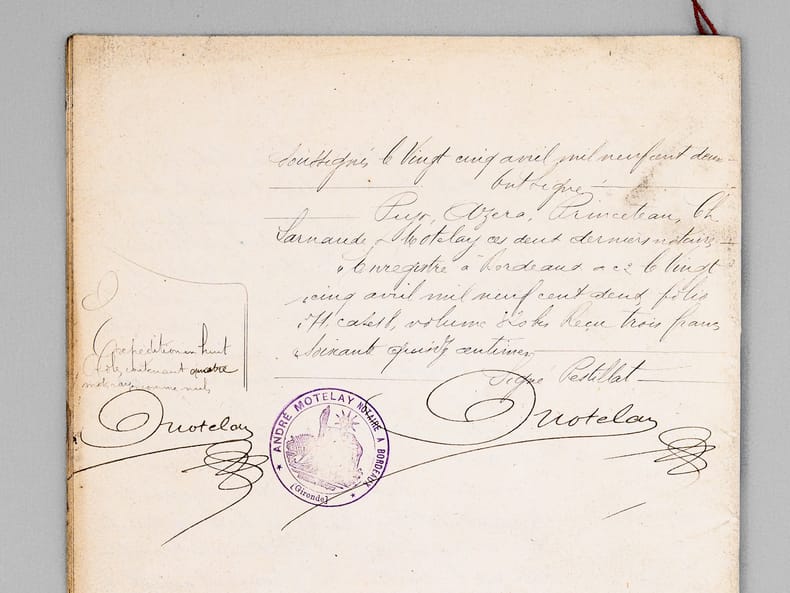 soussignés le Vingt cinq avril mil neuf cent deux
Ont signé
Puyo, Azera, Princeteau, Ch
Larnaude, Motelay ces deux derniers notaires
Enregistré à Bordeaux a c 2 le Vingt
cinq avril mil neuf cent deux folio
case 8, volume Reçu trois francs
Soixante quinze centimes
Signé Pestillat
Expédition en huit
rôles contenant quatre
mots rayés comme nuls
Motelay
Motelay
ANDRÉ MOTELAY NOTAIRE À BORDEAUX
(Gironde)